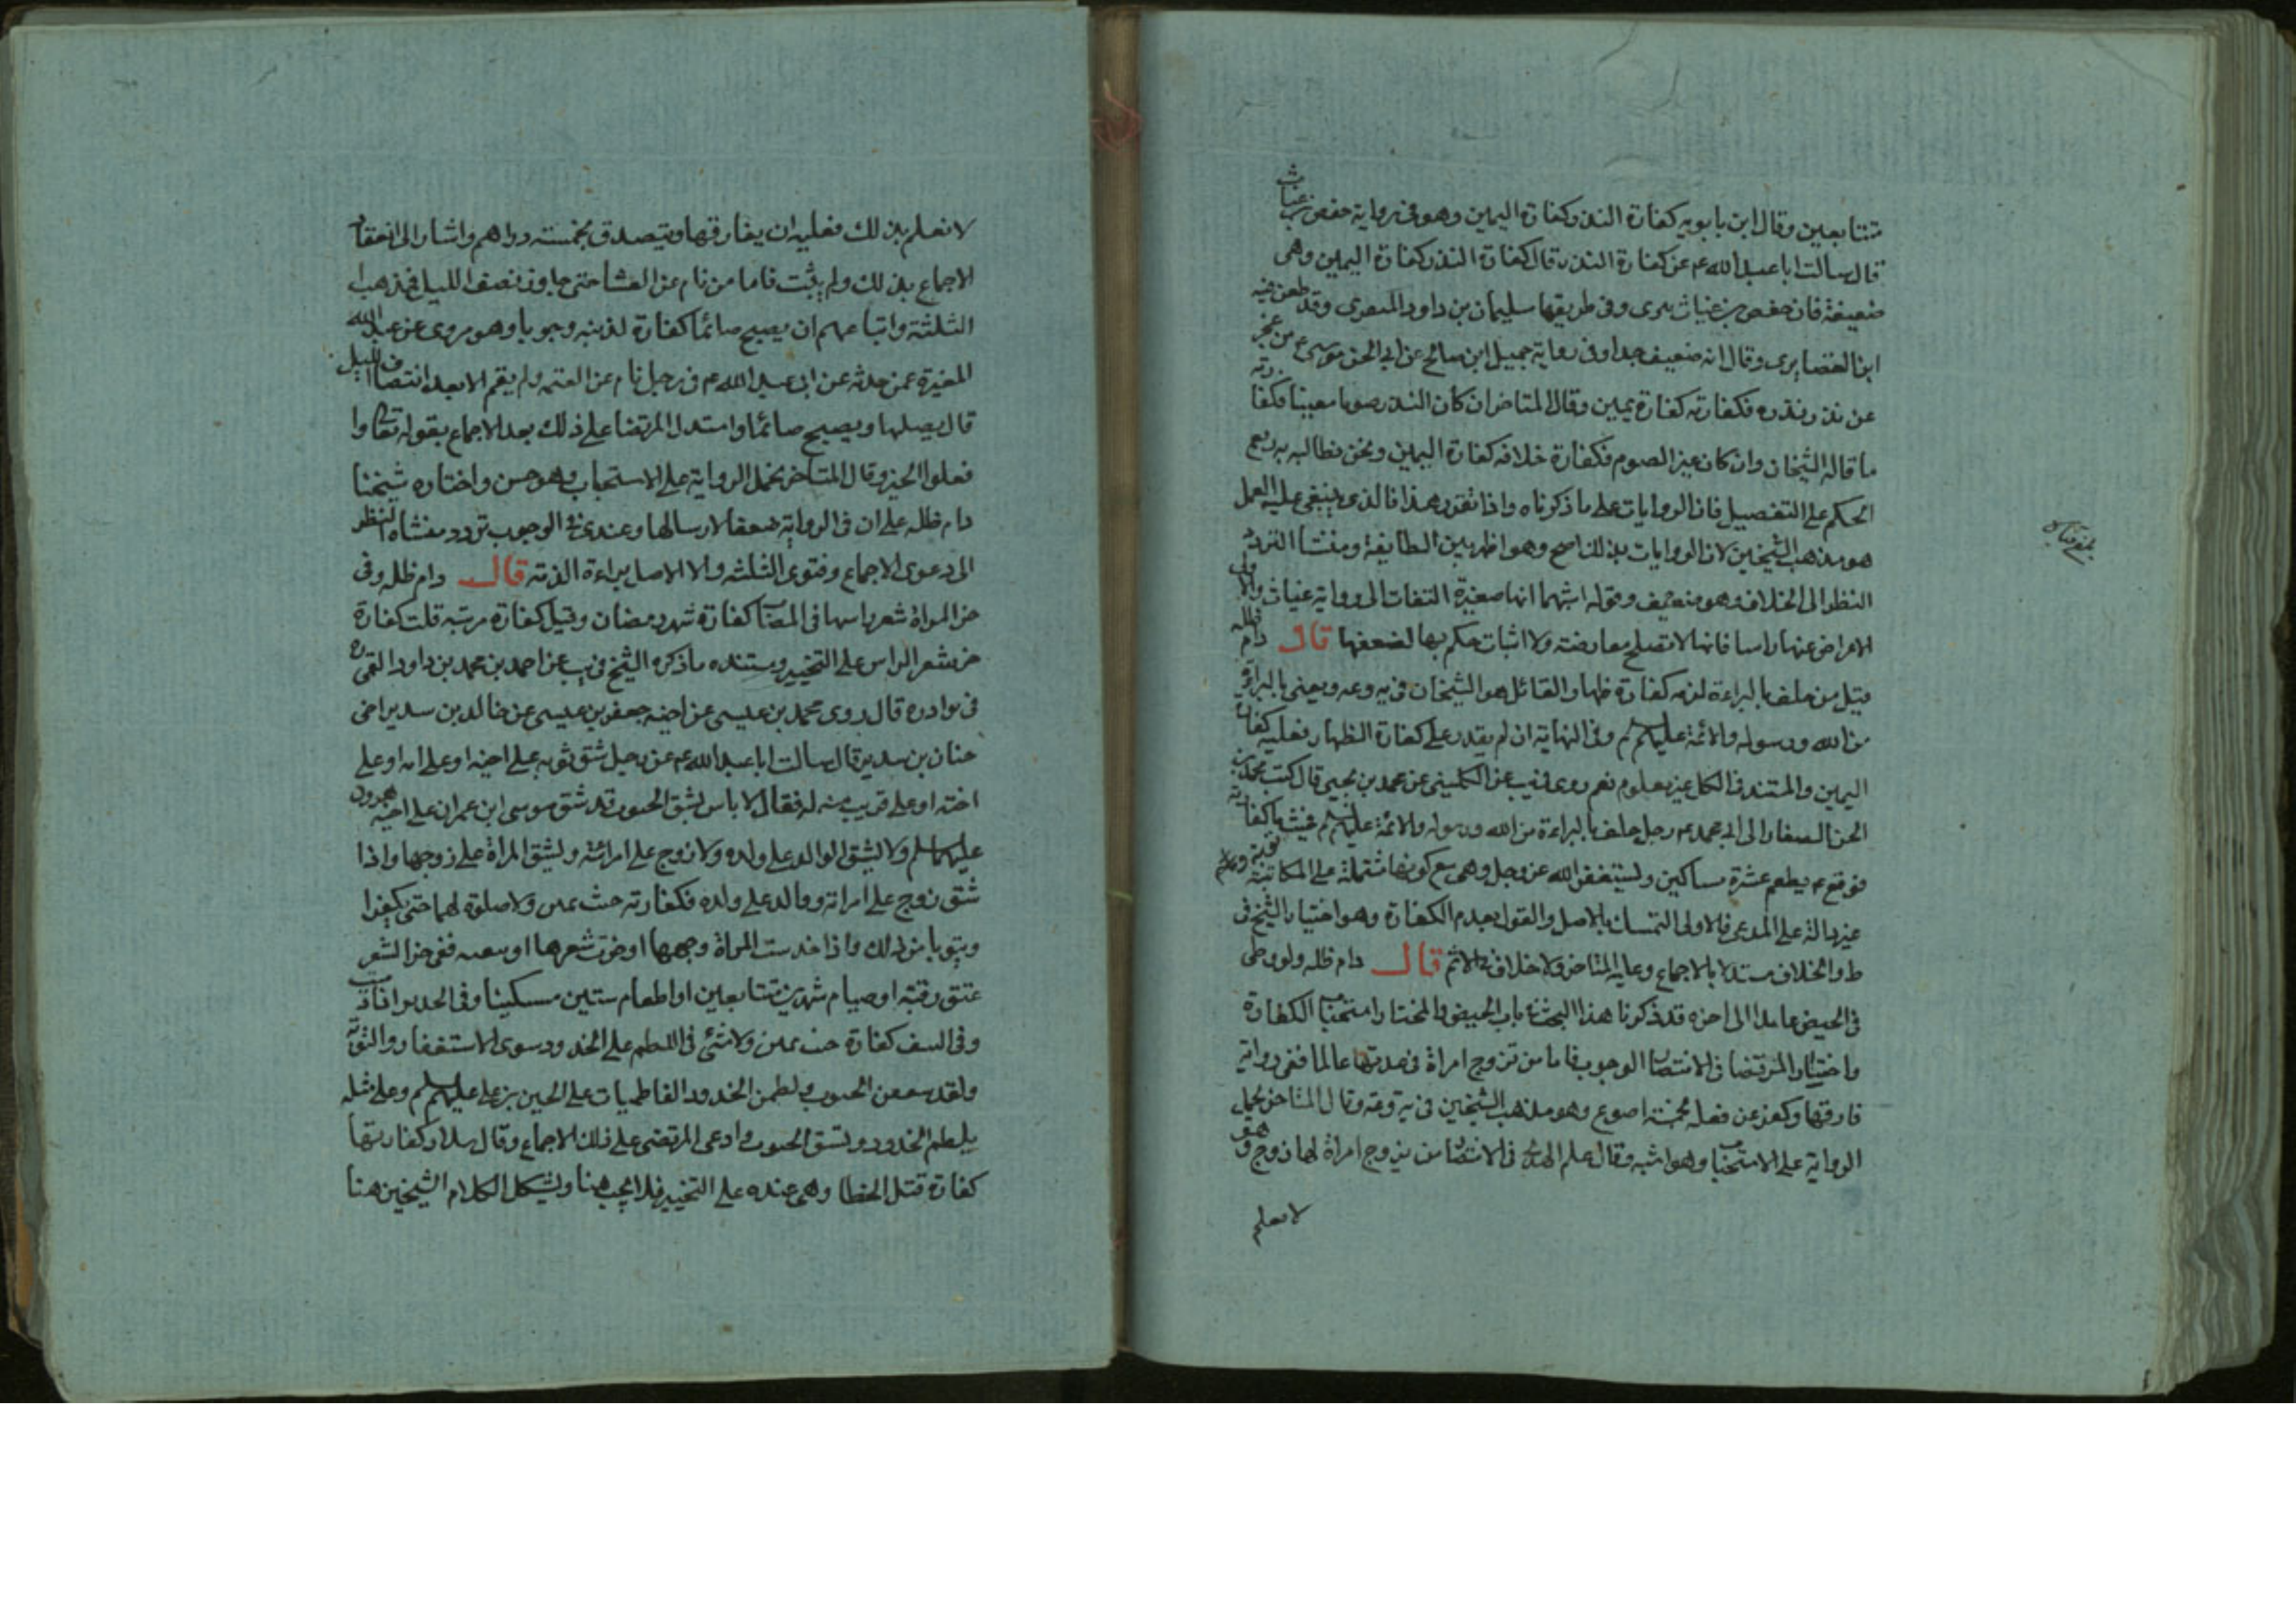 متتابعين وقال ابن بابويه كفارة النذر كفارة اليمين وهو فى رواية حفص بن غياث
قال سالت ابا عبد الله عم عن كفارة النذر قال كفارة النذر كفارة اليمين وهى
ضعيفة فان حفص بن غياث بترى وفى طريقها سليمان بن داود المنقرى وقد طعن فيه
ابن الغضايرى وقال انه ضعيف جدا وفى رواية جميل ابن صالح عن ابى الحسن موسى ع من عجز
عن نذر نذره فكفارته كفارة يمين وقال المتاخر ان كان النذر صوما معينا فكفارته
ما قاله الشيخان وان كان غير الصوم فكفارة خلافه كفارة اليمين ونحن نطالبه
الحكم على التفصيل فان الروايات على ما ذكرناه واذا تقرر هذا فالذى ينبغى عليه العمل
هو مذهب الشيخين لان الروايات بذلك اصح وهو اظهر بين الطايفة ومنشا التردد
النظر الى الخلاف وهو ضعيف وقوله اشبهما انها صغيرة التفات الى رواية غياث والاولى
الاعراض عنها راسا فانها لا تصلح معارضة ولا اثبات حكم بها لضعفها قال دام ظله
قيل من حلف بالبراءة لزمه كفارة ظهار والقائل هو الشيخان فى يه وعه ويعنى بالبراءة
من الله ورسوله والائمة عليهم لم وفى النهاية ان لم يقدر على كفارة الظهار فعليه كفارة
اليمين والمستند فى الكل غير معلوم نعم روى فى يب عن الكلينى عن محمد بن يحيى قال كتب محمد بن
الحسن الصفار الى ابى محمد عم رجل حلف بالبراءة من الله ورسوله والائمة عليهم لم فحنث ما كفارته
فوقع عم يطعم عشرة مساكين ويستغفر الله عز وجل وهى مع كونها مشتملة على المكاتبة
غير دالة على المدعى فالاولى التمسك بالاصل والقول بعدم الكفارة وهو اختيار الشيخ فى
ط والخلاف مستدلا بالاجماع وعليه المتاخر ولا خلاف فى الاثم قال دام ظله ولو وطى
فى الحيض عامدا الى اخره قد ذكرنا هذا البحث فى باب الحيض والمختار استحباب الكفارة
واختيار المرتضا فى الانتصار الوجوب فاما من تزوج امراة فى عدتها عالما ففى رواية
فارقها وكفر عن فعله بخمسة اصوع وهو مذهب الشيخين فى يه وعه وقال المتاخر يحمل
الرواية على الاستحباب وهو اشبه وقال علم الهدى فى الانتصار من تزوج امراة لها زوج وهو
لا يعلم
لا يعلم بذلك فعليه ان يفارقها ويتصدق بخمسة دراهم واشار الى انعقاد
الاجماع بذلك ولم يثبت فاما من نام عن العشا حتى جاوز نصف الليل فمذهب
الثلثة واتباعهم ان يصبح صائما كفارة لذنبه وجوبا وهو مروى عن عبد الله
المغيرة عمن حدثه عن ابى عبد الله عم فى رجل نام عن العتمه ولم يقم الا بعد انتصاف الليل
قال يصليها ويصبح صائما واستدل المرتضا على ذلك بعد الاجماع بقوله تعالى وا
فعلوا الخير وقال المتاخر تحمل الرواية على الاستحباب وهو حسن واختاره شيخنا
دام ظله على ان فى الرواية ضعفا لارسالها وعندى فى الوجوب تردد منشاه النظر
الى دعوى الاجماع وفتوى الثلثه والا الاصل براءة الذمه قال دام ظله وفى
جز المراة شعر راسها فى المصاب كفارة شهر رمضان وقيل كفارة مرتبه قلت كفارة
جز شعر الراس على التخيير ومستنده ما ذكره الشيخ فى يب عن احمد بن محمد بن داود القمى ره
فى نوادره قال روى محمد بن عيسى عن اخيه جعفر بن عيسى عن خالد بن سدير اخى
حنان بن سدير قال سالت ابا عبد الله عم عن رجل شق ثوبه على ابيه او على امه او على
اخته او على قريب منه له فقال لا باس بشق الجيوب قد شق موسى ابن عمران على اخيه هرون
عليهما سلم ولا يشق الوالد على ولده ولا زوج على امراته ويشق المراة على زوجها واذا
شق زوج على امراته ووالد على ولده فكفارته حنث يمين ولا صلوة لهما حتى يكفرا
ويتوبا من ذلك واذا خدست المراة وجهها او جزت شعرها او نتفته ففى جز الشعر
عتق رقبة او صيام شهرين متتابعين او اطعام ستين مسكينا وفى الخدش اذا ادميت
وفى النتف كفارة حنث يمين ولا شئ فى اللطم على الخدود سوى الاستغفار والتوبة
ولقد شققن الجيوب ولطمن الخدود الفاطميات على الحسين بن على عليهم لم وعلى مثله
يلطم الخدود ويشق الجيوب وادعى المرتضى على ذلك الاجماع وقال سلار كفارتها
كفارة قتل الخطا وهى عنده على التخيير فلا يجب هنا ويشكل الكلام الشيخين هنا